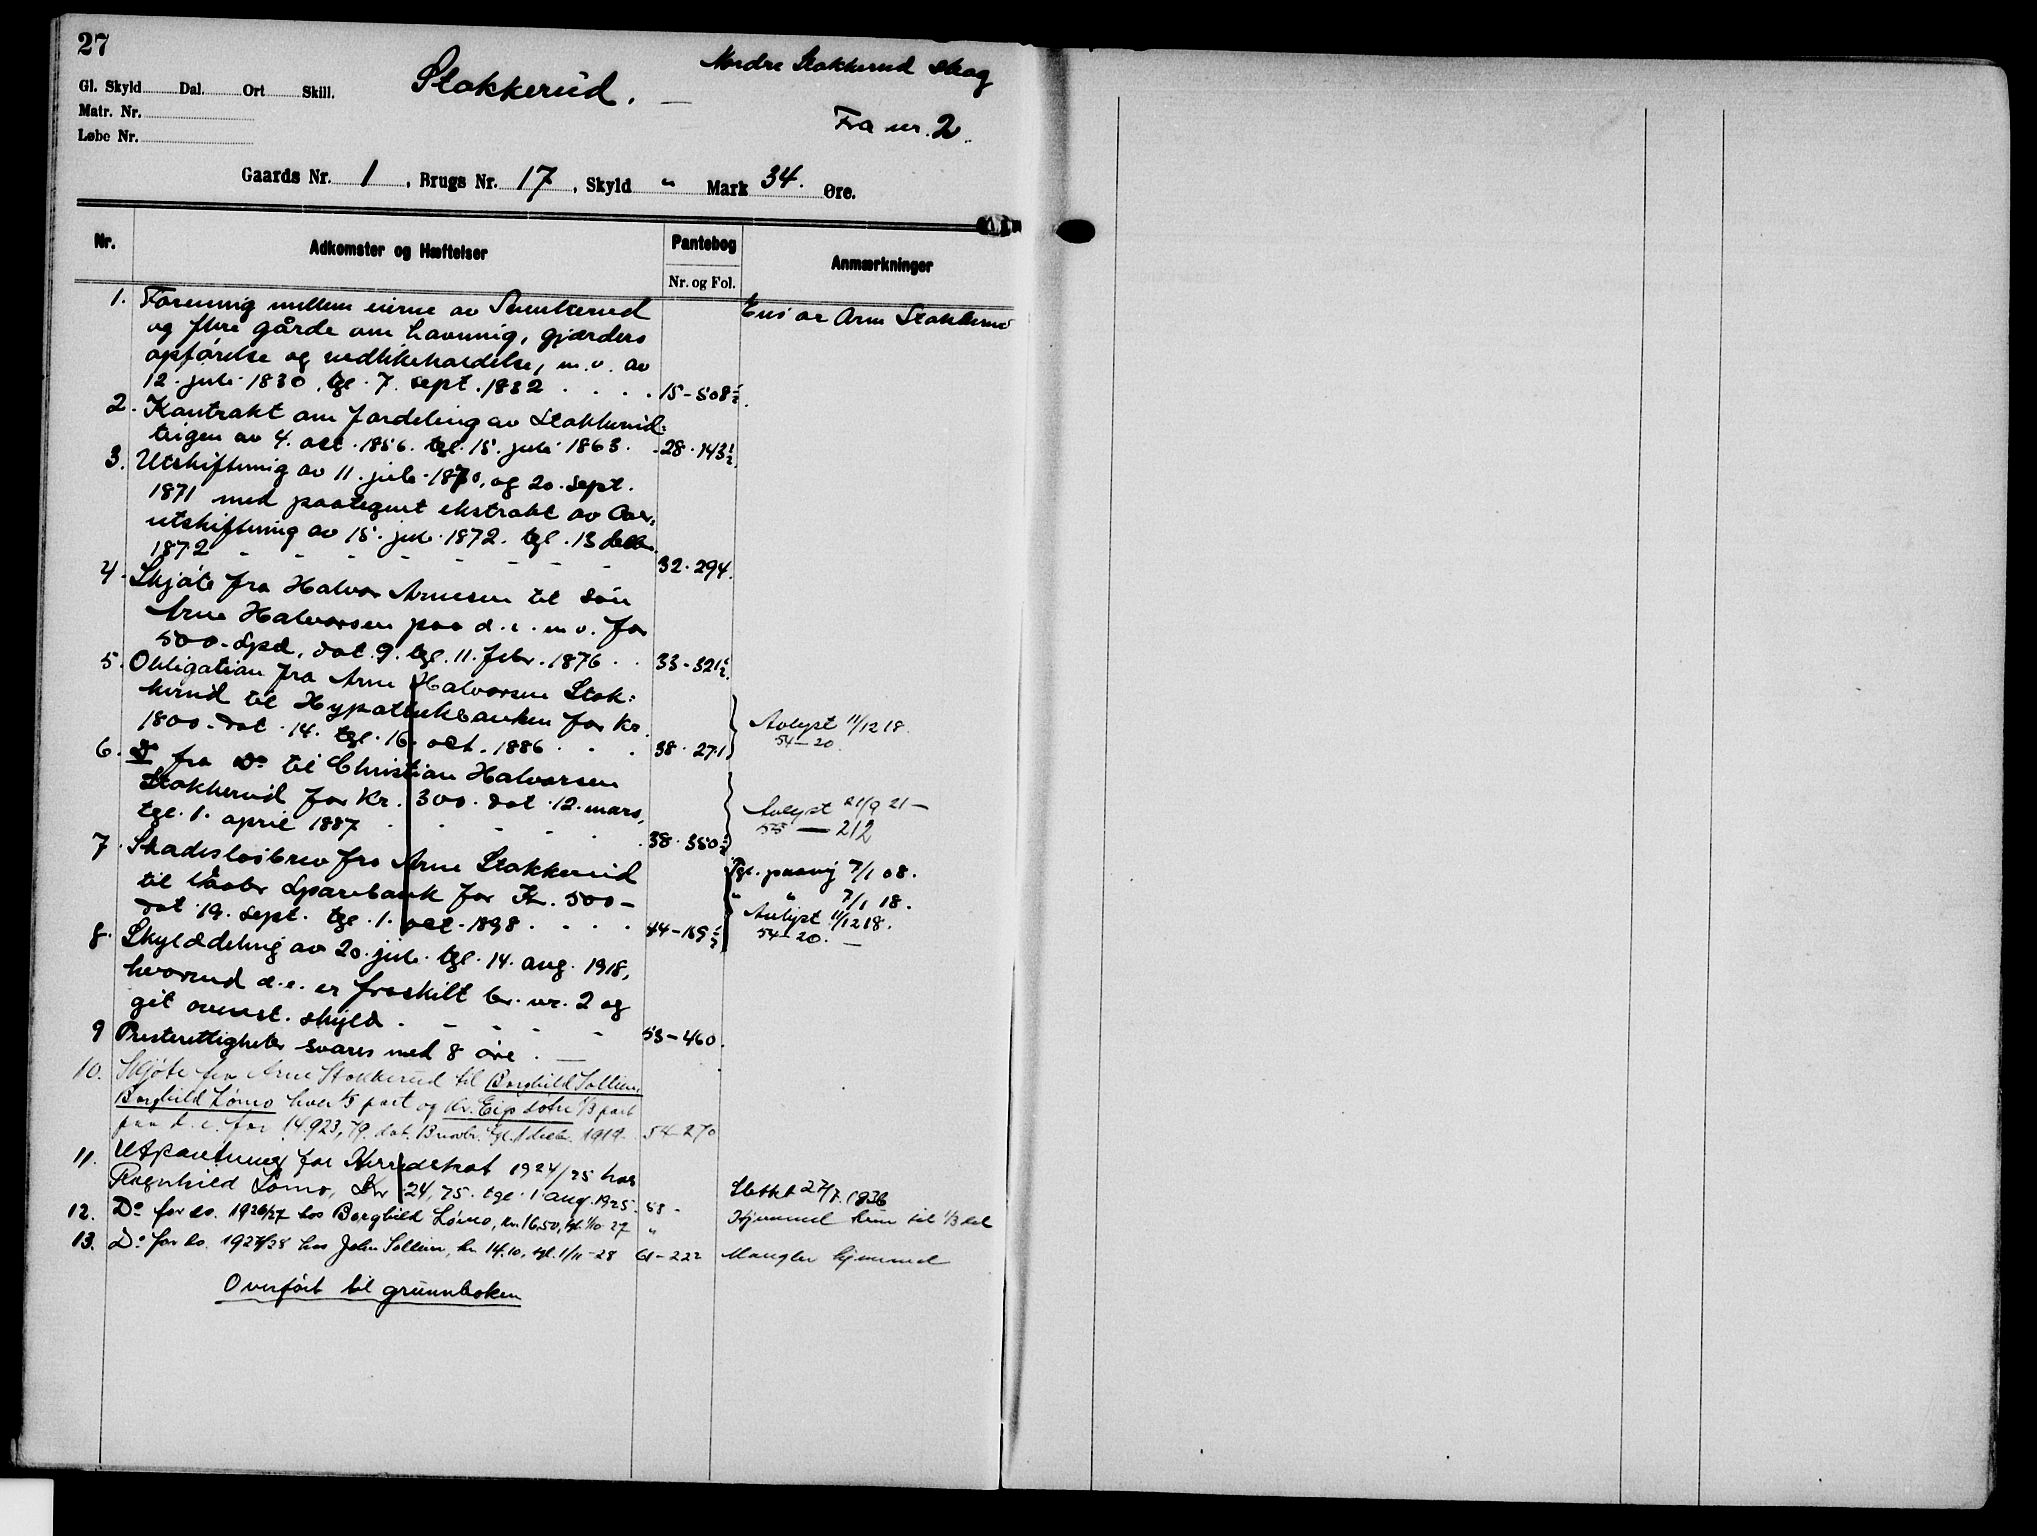 27
Stokkerud. —
Nordre Stokkerud skog
Gl. Skyld Dal. Ort Skill.
Matr. Nr.
Løbe Nr.
Fra nr. 2.
Gaards Nr. 1, Brugs Nr. 17, Skyld " Mark 34. Øre.
Nr. Adkomster og Hæftelser Pantebog Anmærkninger
Nr. og Fol.
1. Forening mellem eierne av Stumkerud Eies av Arne Stokkerud
og flere gårde om havning, gjærders
opförelse og vedlikeholdelse, m.v. av
12. juli 1830, tgl. 7. sept. 1832 . . . . 15-508½.
2. Kontrakt om fordeling av Stokkerud-
teigen av 4. oct. 1856. tgl. 15. juli 1863. - 28-143½.
3. Utskiftning av 11. juli 1870, og 20. sept.
1871 med paategnet ekstrakt av Over-
utskiftning av 15. juli 1872. tgl. 13 decbr.
1872 - - - - - - - 32-294.
4. Skjöte fra Halvor Arnesen til sön
Arne Halvorsen paa d. e. m. v. for
500.-Spd. dat. 9. tgl. 11. febr. 1876 . . 33-321½.
5. Obligation fra Arne Halvorsen Stok:
kerud til Hypothekbanken for kr.
1800.- dat. 14. tgl. 16. oct. 1886 . . . 38-271 Avlyst 11/12 18.
54-20.
6. Do fra Do til Christian Halvorsen
Stokkerud for Kr. 300. dat. 12. mars,
tgl. 1. april 1887 . . . . . . 38-350½ Avlyst 21/9 21 —
55 — 212
7. Skadeslösbrev fra Arne Stokkerud
til Vaaler Sparebank for Kr. 500 -
dat. 19. sept. tgl. 1. oct. 1898 . . . . 44-169½
Tgl. paany 7/1 08.
" " 7/1 18.
Avlyst 11/12 18.
54-20. —
8. Skylddeling av 20. juli tgl. 14. aug. 1918,
hvorved d. e. er fraskilt br. nr. 2 og
git ovenst. skyld . - - - - 53-460.
9 Presterettigheter svares med 8 øre. —
10. Skjöte fra Arne Stokkerud til Borghild Sollien,
Borghild Lömo hver 1/3 part og 1/3 part
paa d. e. for 14.923,79. dat. 13 novbr. tgl. 1 decbr. 1919. 54-270
11. Utpantning for Herredskat 1924/25 hos
Ragnhild Lömo, Kr 24,75. tgl. 1 aug. 1925. 58 - Slettet 27/7. 1936
12. Do for do. 1926/27 hos Borghild Lömo, kr. 16.50, tgl. 1/10 27 " Hjemmel kun til 1/3 del
13. Do for do. 1927/28 hos John Sollien, kr. 14.10, tgl. 1/11-28 61-222 Mangler hjemmel
Overført til grunnboken